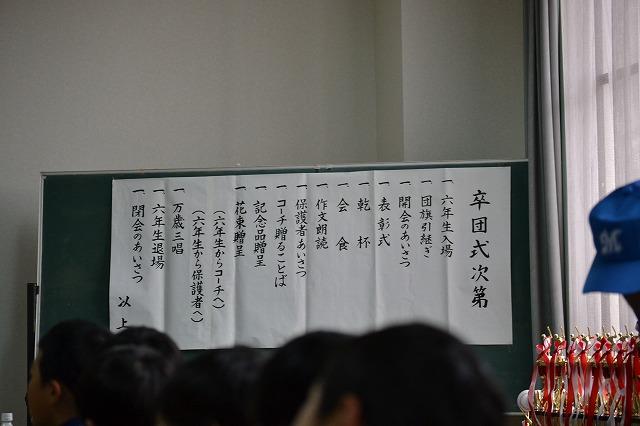 卒団式次第
一 六年生入場
一 団旗引継ぎ
一 開会のあいさつ
一 表彰式
一 乾杯
一 会食
一 作文朗読
一 保護者あいさつ
一 コーチ贈ることば
一 記念品贈呈
一 花束贈呈
（六年生からコーチへ）
（六年生から保護者へ）
一 万歳三唱
一 六年生退場
一 閉会のあいさつ
以上
M